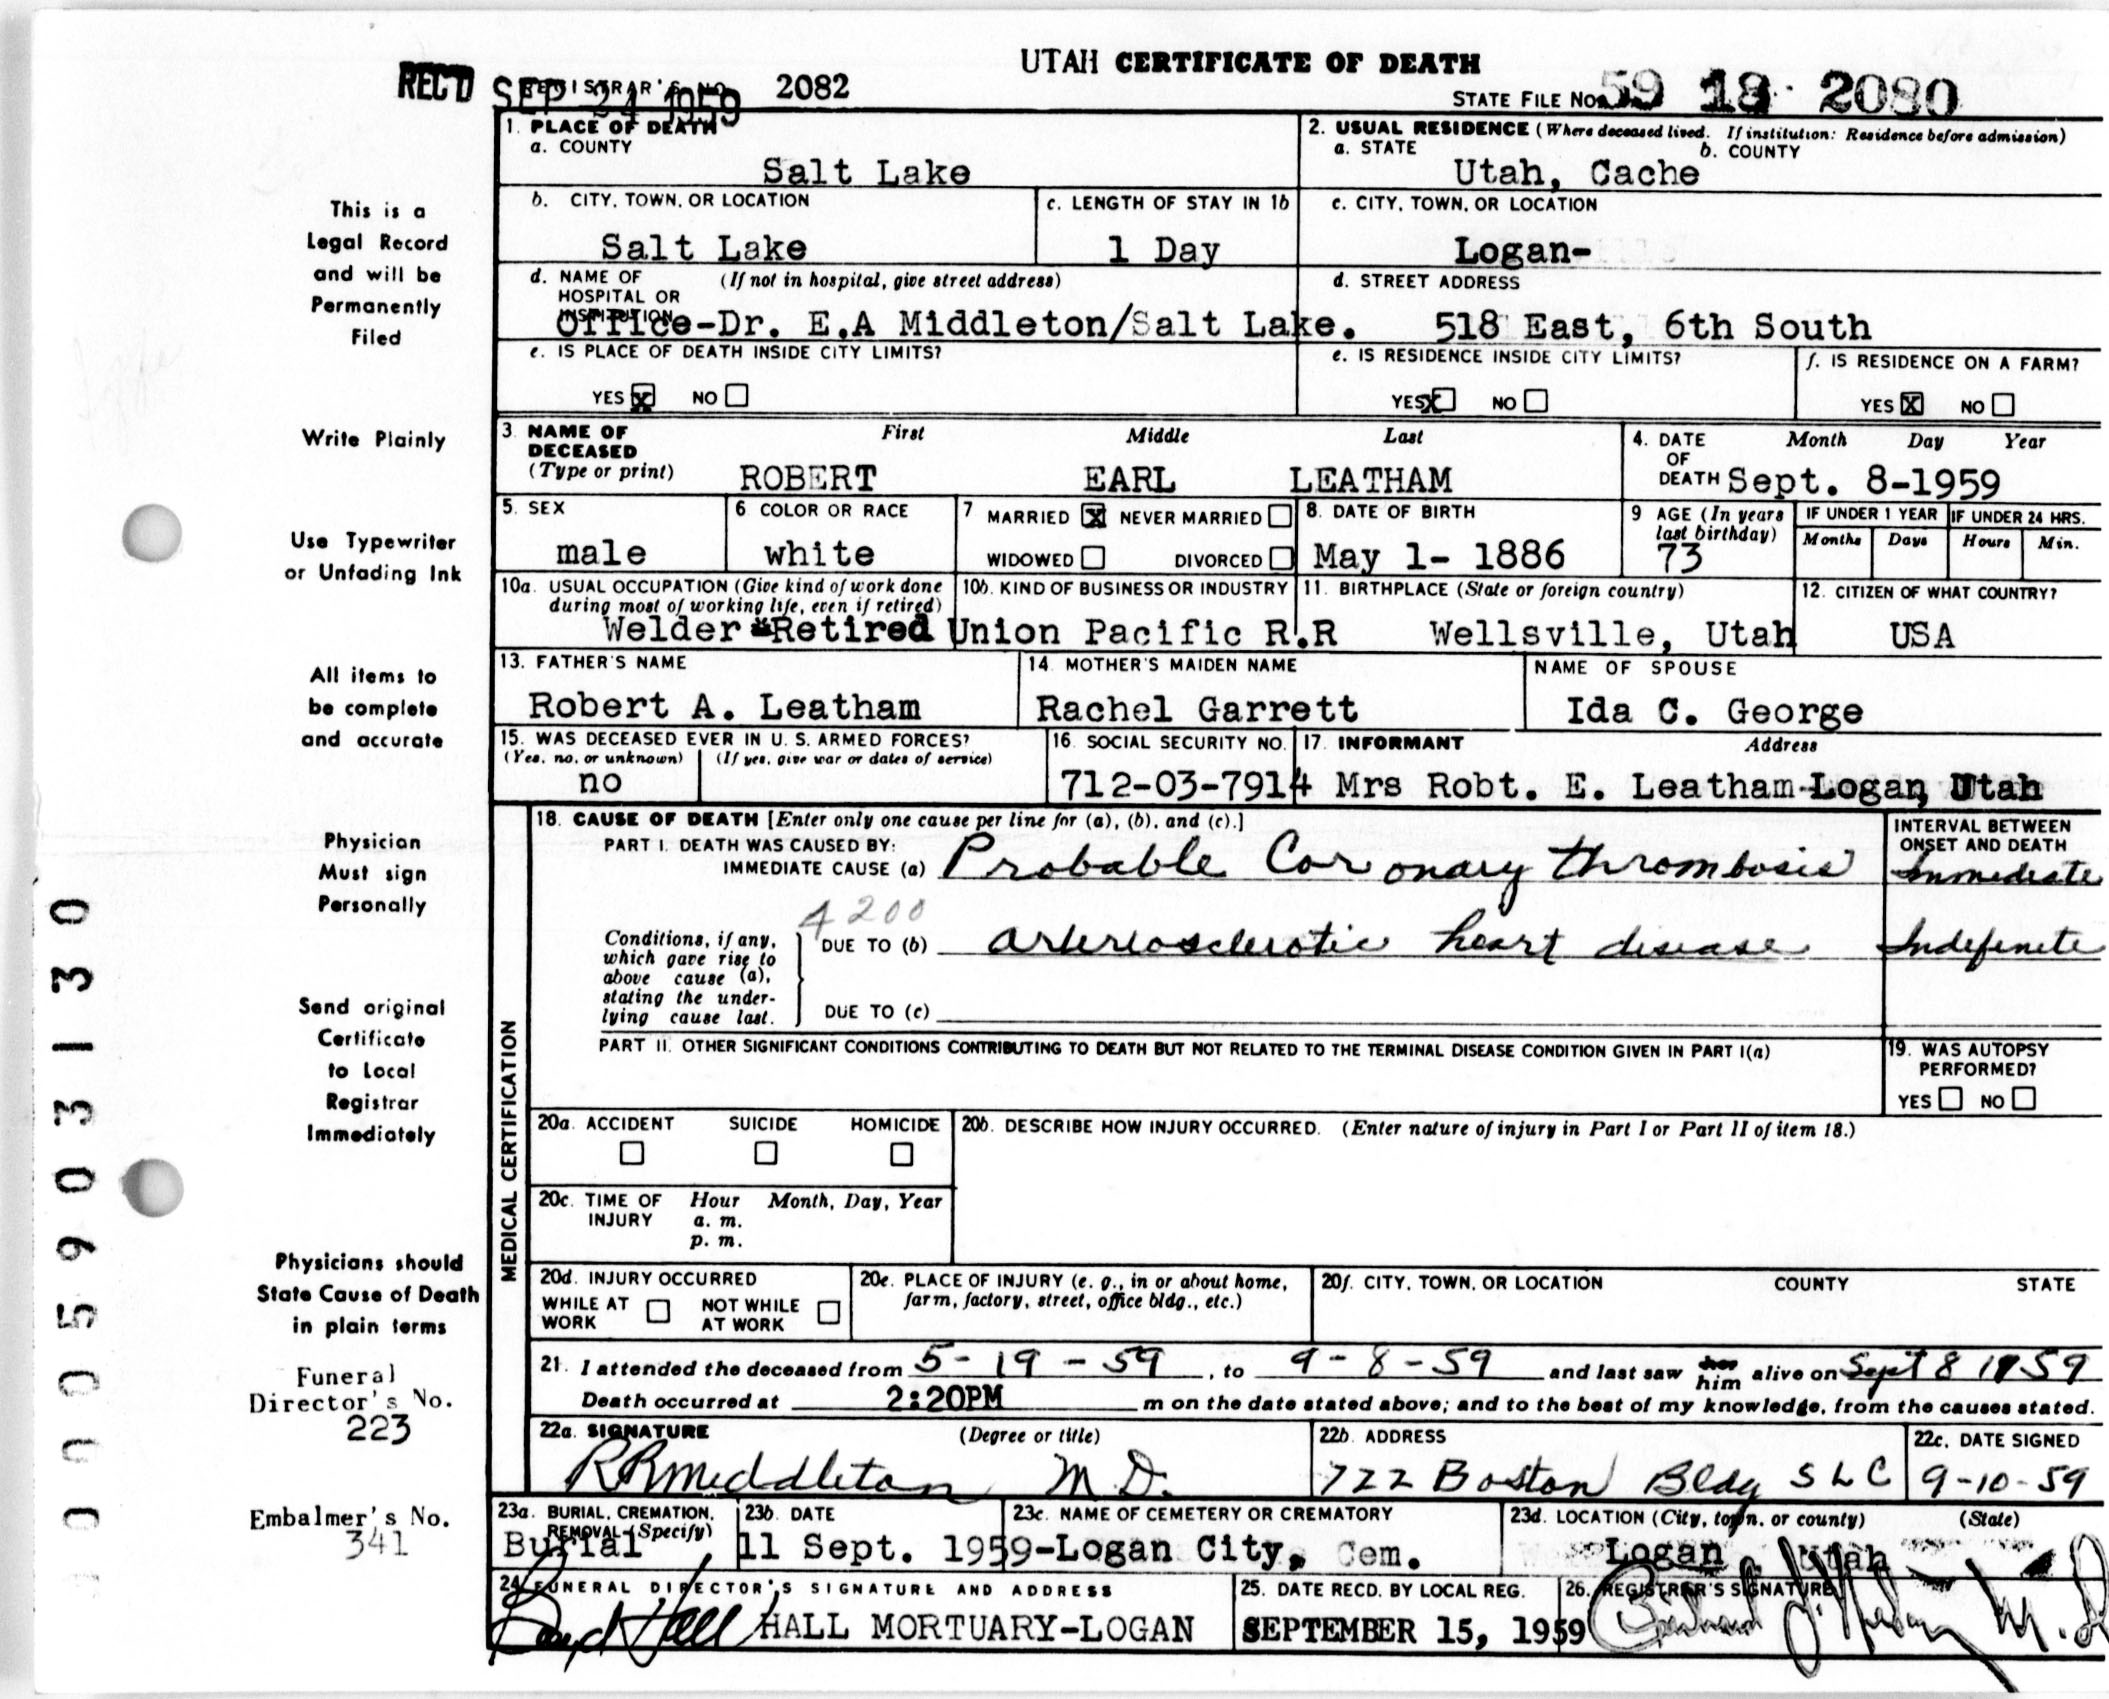 UTAH CERTIFICATE OF DEATH
REC'D SEP 24 1959 REGISTRAR'S NO. 2082
STATE FILE NO. 59 18 2080
1. PLACE OF DEATH
a. COUNTY
Salt Lake
2. USUAL RESIDENCE (Where deceased lived. If institution: Residence before admission)
a. STATE b. COUNTY
Utah, Cache
b. CITY, TOWN, OR LOCATION
Salt Lake
c. LENGTH OF STAY IN 1b
1 Day
c. CITY, TOWN, OR LOCATION
Logan-
d. NAME OF (If not in hospital, give street address)
HOSPITAL OR
INSTITUTION
Office-Dr. E.A Middleton/Salt Lake.
d. STREET ADDRESS
518 East, 6th South
e. IS PLACE OF DEATH INSIDE CITY LIMITS?
YES X NO
e. IS RESIDENCE INSIDE CITY LIMITS?
YES X NO
f. IS RESIDENCE ON A FARM?
YES X NO
3. NAME OF DECEASED
(Type or print)
First Middle Last
ROBERT EARL LEATHAM
4. DATE OF DEATH
Month Day Year
Sept. 8-1959
5. SEX
male
6 COLOR OR RACE
white
7 MARRIED X NEVER MARRIED
WIDOWED DIVORCED
8. DATE OF BIRTH
May 1- 1886
9 AGE (In years last birthday)
73
IF UNDER 1 YEAR
Months Days
IF UNDER 24 HRS.
Hours Min.
10a. USUAL OCCUPATION (Give kind of work done
during most of working life, even if retired)
Welder-Retired
10b. KIND OF BUSINESS OR INDUSTRY
Union Pacific R.R
11. BIRTHPLACE (State or foreign country)
Wellsville, Utah
12. CITIZEN OF WHAT COUNTRY?
USA
13. FATHER'S NAME
Robert A. Leatham
14. MOTHER'S MAIDEN NAME
Rachel Garrett
NAME OF SPOUSE
Ida C. George
15. WAS DECEASED EVER IN U. S. ARMED FORCES?
(Yes, no, or unknown) (If yes, give war or dates of service)
no
16. SOCIAL SECURITY NO.
712-03-7914
17. INFORMANT Address
Mrs Robt. E. Leatham-Logan, Utah
18. CAUSE OF DEATH [Enter only one cause per line for (a), (b), and (c).]
PART I. DEATH WAS CAUSED BY:
IMMEDIATE CAUSE (a) Probable Coronary thrombosis
INTERVAL BETWEEN
ONSET AND DEATH
Immediate
4200
Conditions, if any,
which gave rise to
above cause (a),
stating the under-
lying cause last.
DUE TO (b) arteriosclerotic heart disease Indefinite
DUE TO (c)
PART II. OTHER SIGNIFICANT CONDITIONS CONTRIBUTING TO DEATH BUT NOT RELATED TO THE TERMINAL DISEASE CONDITION GIVEN IN PART I(a)
19. WAS AUTOPSY
PERFORMED?
YES NO
20a. ACCIDENT SUICIDE HOMICIDE
20b. DESCRIBE HOW INJURY OCCURRED. (Enter nature of injury in Part I or Part II of item 18.)
20c. TIME OF INJURY
Hour Month, Day, Year
a. m.
p. m.
20d. INJURY OCCURRED
WHILE AT WORK NOT WHILE AT WORK
20e. PLACE OF INJURY (e. g., in or about home,
farm, factory, street, office bldg., etc.)
20f. CITY, TOWN, OR LOCATION COUNTY STATE
MEDICAL CERTIFICATION
21. I attended the deceased from 5-19-59, to 9-8-59 and last saw her him alive on Sept 8 1959
Death occurred at 2:20PM m on the date stated above; and to the best of my knowledge, from the causes stated.
22a. SIGNATURE (Degree or title)
R R Middleton M.D.
22b. ADDRESS
722 Boston Bldg S L C
22c. DATE SIGNED
9-10-59
23a. BURIAL, CREMATION,
REMOVAL (Specify)
Burial
23b. DATE
11 Sept. 1959-
23c. NAME OF CEMETERY OR CREMATORY
Logan City, Cem.
23d. LOCATION (City, town, or county) (State)
Logan Utah
24. FUNERAL DIRECTOR'S SIGNATURE AND ADDRESS
Boyd Hall HALL MORTUARY-LOGAN
25. DATE RECD. BY LOCAL REG.
SEPTEMBER 15, 1959
26. REGISTRAR'S SIGNATURE
M.D.
This is a
Legal Record
and will be
Permanently
Filed
Write Plainly
Use Typewriter
or Unfading Ink
All items to
be complete
and accurate
Physician
Must sign
Personally
Send original
Certificate
to Local
Registrar
Immediately
Physicians should
State Cause of Death
in plain terms
Funeral
Director's No.
223
Embalmer's No.
341
0005903130